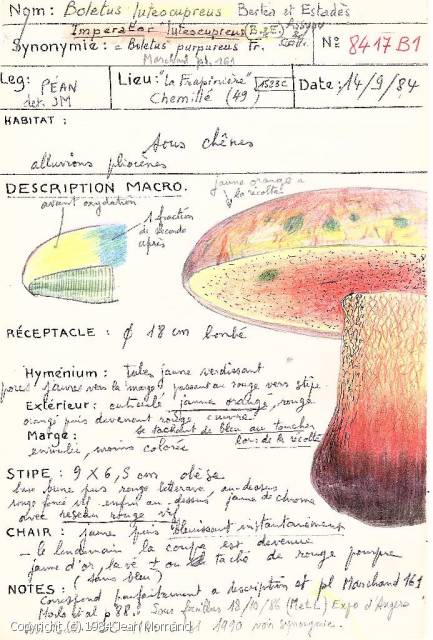 Nom : Boletus luteocupreus Bertéa et Estadès
Imperator luteocupreus (B. & E.) Assyov & Coll.
Synonymie : = Boletus purpureus Fr.
Marchand pl. 161
N° 8417B1
Leg : PÉAN
det. JM
Lieu : "La Frapinière" 1523C
Chemillé (49)
Date : 14/9/84
HABITAT :
sous chênes
alluvions pliocènes
DESCRIPTION MACRO.
avant oxydation
1 fraction
de seconde
après
jaune orangé à
la récolte
RÉCEPTACLE : ϕ 18 cm bombé
Hyménium : tubes jaune verdissant
pores jaunes vers la marge passant au rouge vers stipe
Extérieur : cuticule jaune orangé, rouge
orangé puis devenant rouge cuivré
se tachant de bleu au toucher
lors de la récolte
Marge :
enroulée, moins colorée
STIPE : 9 X 6,5 cm obèse
base brune puis rouge au-dessus
rouge foncé et enfin au dessus jaune de chrome
avec réseau rouge vif
CHAIR : jaune puis bleuissant instantanément
- le lendemain la coupe est devenue
jaune d'or, lavé ± au taché de rouge pourpre
(sans bleu)
NOTES :
Correspond parfaitement à description et pl Marchand 161
p 88. Sous 18/10/86 Expo d'Angers
1910 synonymie.
Copyright (c) 1984 Jean Mornand